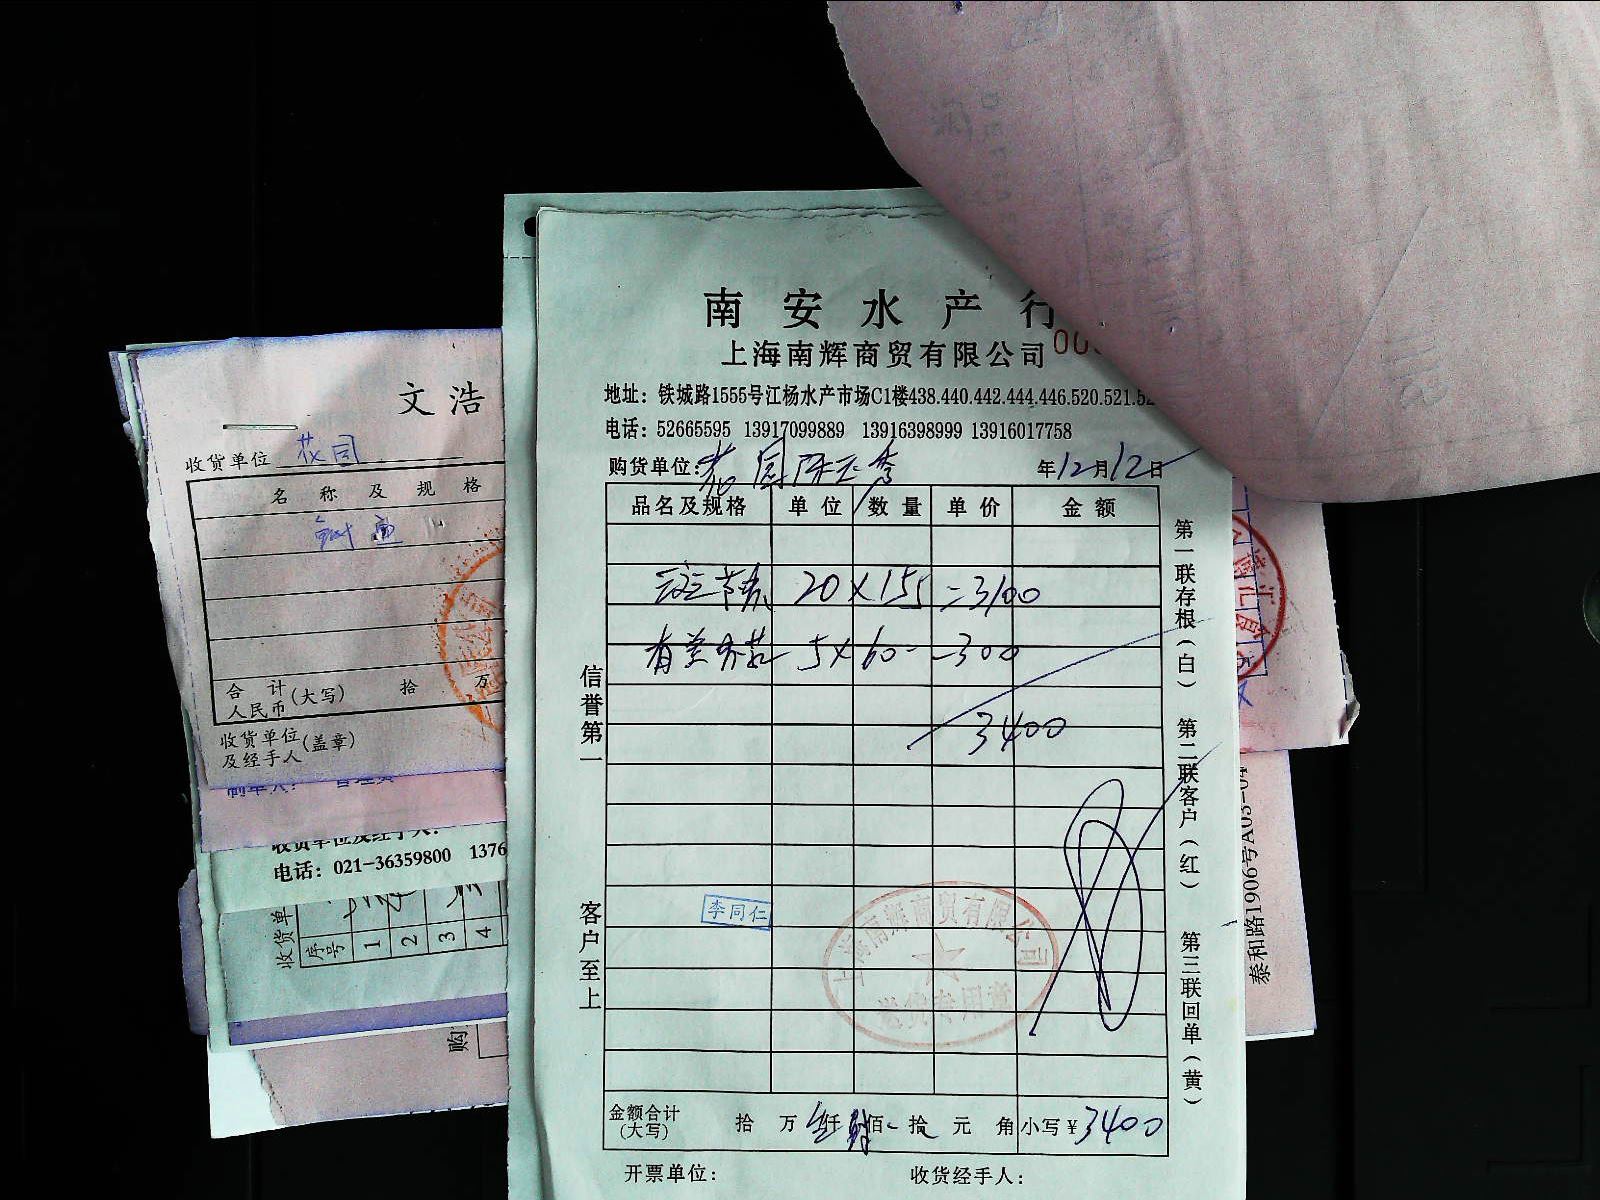 南安水产行
上海南辉商贸有限公司
00
地址：铁城路1555号江杨水产市场C1楼438.440.442.444.446.520.521.52
电话：52665595 13917099889 13916398999 13916017758
购货单位：花园 年12月12日
品名及规格 单位 数量 单价 金额
20×155=3100
5×60=300
3400
李同仁
上海南辉商贸有限公司
送货专用章
金额合计（大写） 拾 万 仟 佰 拾 元 角 小写￥3400
开票单位： 收货经手人：
信誉第一
客户至上
第一联存根（白） 第二联客户（红） 第三联回单（黄）
文浩
收货单位 花园
名称及规格
合计人民币（大写） 拾 万
收货单位及经手人（盖章）
制单人： 管理员
收货单位及经手人：
电话：021-36359800 1376
收货单
序号 1 2 3 4
购
泰和路1906号A03-04